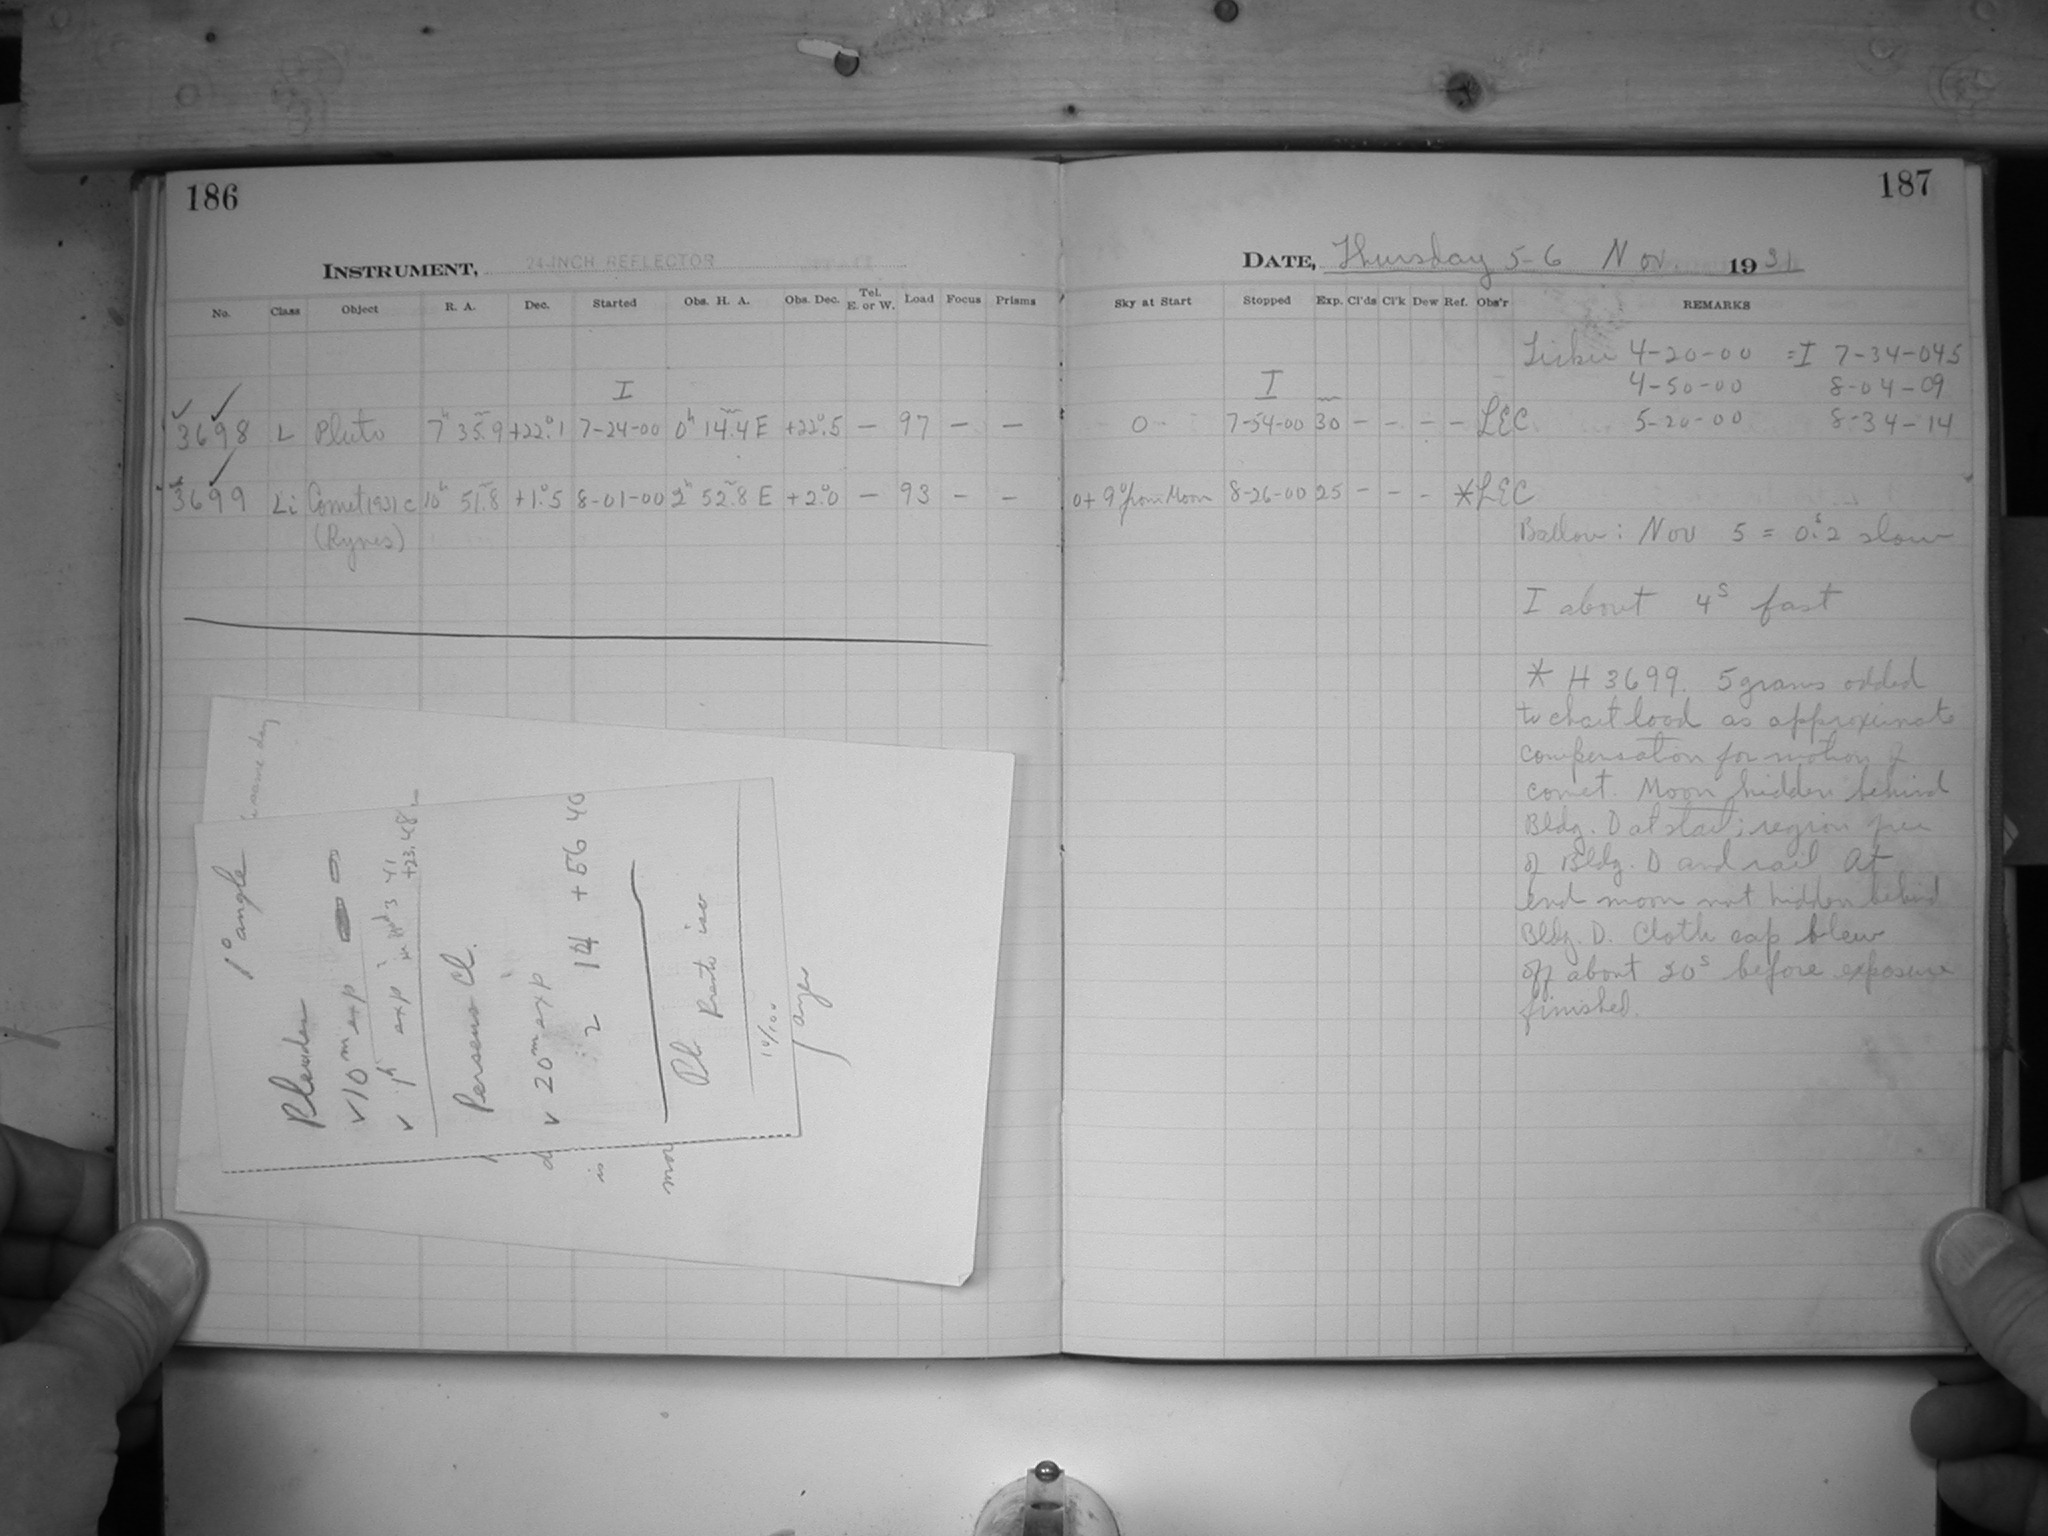 186
INSTRUMENT, 24-INCH REFLECTOR
No. Class Object R. A. Dec. Started Obs. H. A. Obs. Dec. Tel. E. or W. Load Focus Prisms
I
3698 L Pluto 7h 35m.9 +22°.1 7-24-00 0h 14m.4 E +22°.5 — 97 — —
3699 Li Comet 1931 c 10h 51m.8 +1°.5 8-01-00 2h 52m.8 E +2°.0 — 93 — —
(Ryves)
same day
1° angle
Pleiades
v 10m exp
v 1h exp in 3 41
+23.48
Perseus Cl.
v 20m exp
2 14 +56 40
Pl iso
14/100
is
187
DATE, Thursday 5-6 Nov 1931
Sky at Start Stopped Exp. Cl'ds Cl'k Dew Ref. Obs'r REMARKS
4-20-00 = I 7-34-04.5
4-50-00 8-04-09
I
0 7-54-00 30m — — — — LEC 5-20-00 8-34-14
0 + 9° from Moon 8-26-00 25 — — — * LEC
Nov 5 = 0s.2 slow
I about 4s fast
* H 3699. 5 grams added
to chart load as approximate
compensation for motion of
comet. Moon hidden behind
Bldg. D at start; region free
of Bldg. D and rail At
end moon not hidden behind
Bldg. D. Cloth cap blew
off about 20s before exposure
finished.